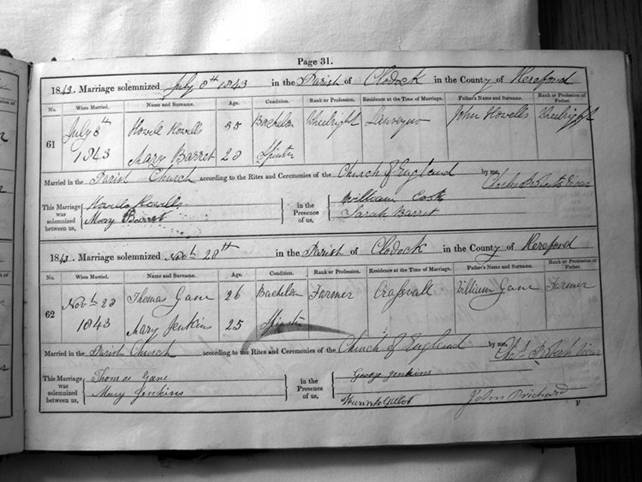 Page 31.
1843. Marriage solemnized July 8th 1843 in the Parish of Clodock in the County of Hereford
No. When Married. Name and Surname. Age. Condition. Rank or Profession. Residence at the Time of Marriage. Father's Name and Surname. Rank or Profession of Father.
61 July 8th 1843 Howell Howells 35 Bachelor John Howells
Mary Barret 20 Spinster
Married in the Parish Church according to the Rites and Ceremonies of the Church of England by me,
This Marriage was solemnized between us, Howells Mary Barret in the Presence of us, William Cook Sarah Barret
1843. Marriage solemnized Novbr 20th in the Parish of Clodock in the County of Hereford
No. When Married. Name and Surname. Age. Condition. Rank or Profession. Residence at the Time of Marriage. Father's Name and Surname. Rank or Profession of Father.
62 Novbr 20 1843 Thomas Jane 26 Bachelor Farmer Craswall William Jane Farmer
Mary Jenkins 25 Spinster
Married in the Parish Church according to the Rites and Ceremonies of the Church of England by me,
This Marriage was solemnized between us, Thomas Jane Mary Jenkins in the Presence of us, George Jenkins John Prichard
F